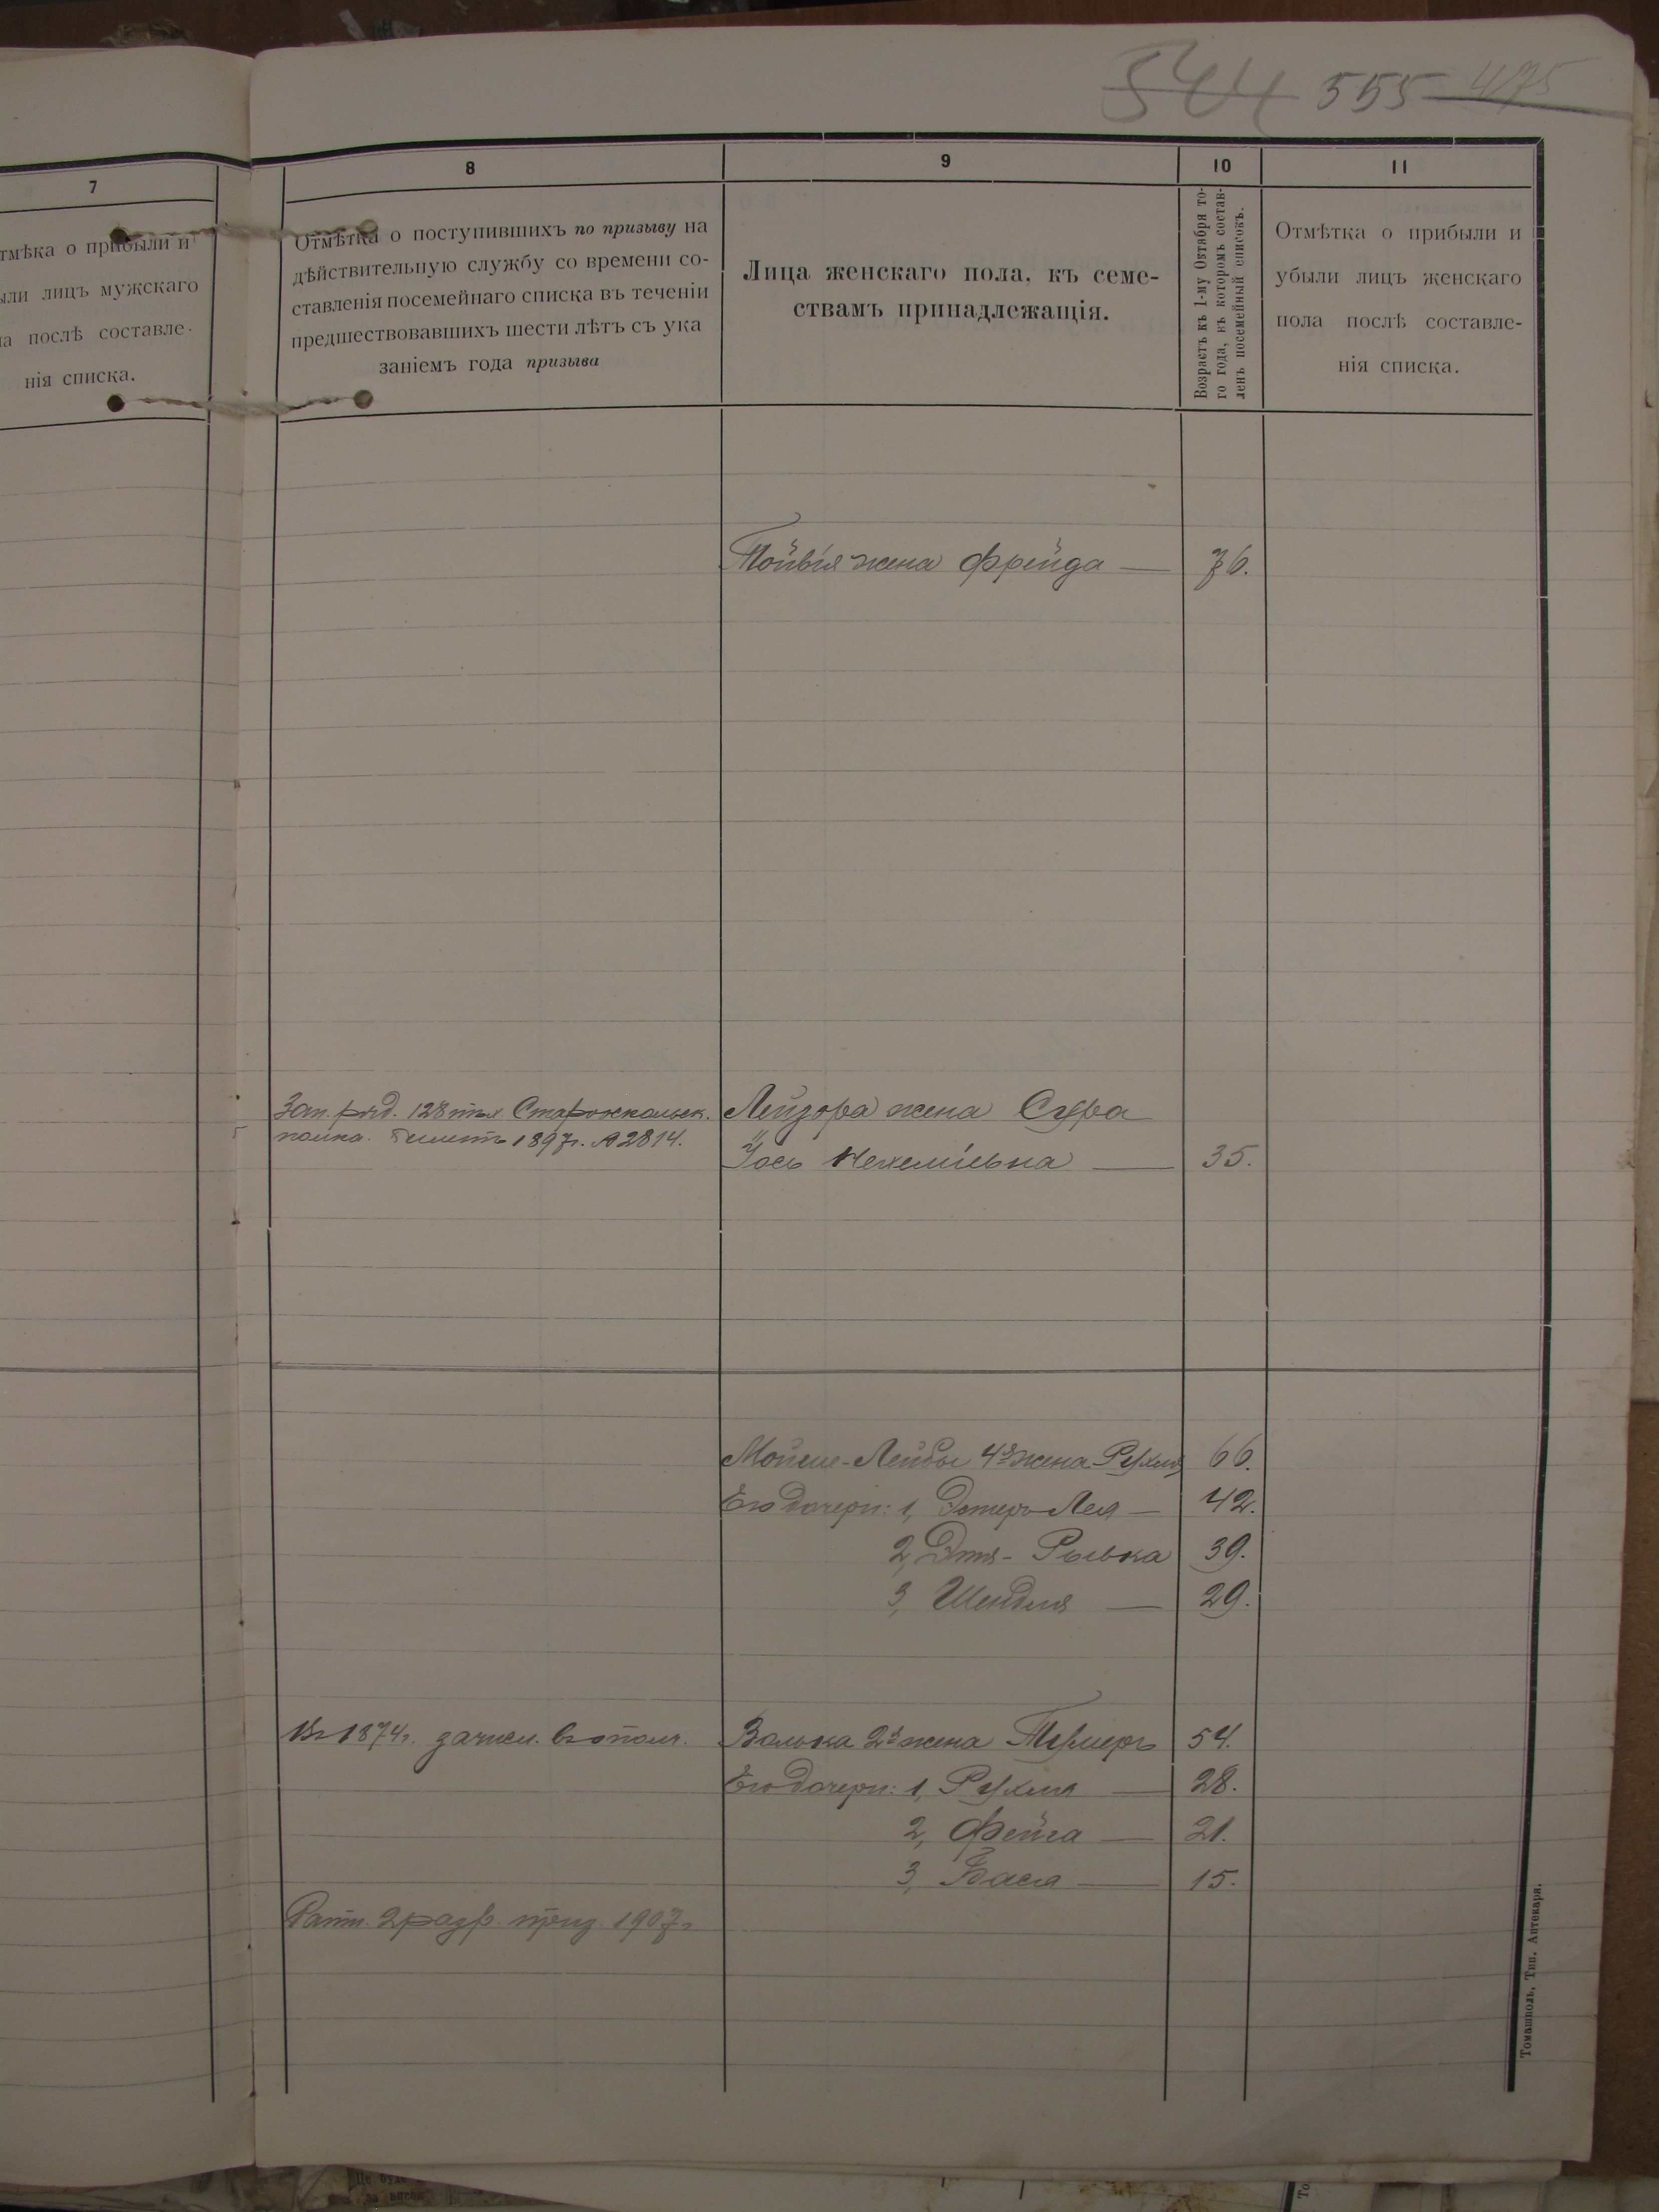 544 555 475
7
тмѣка о прибыли и
ыли лицъ мужскаго
ла послѣ составле-
нія списка.
8
Отмѣтка о поступившихъ по призыву на
дѣйствительную службу со времени со-
ставленія посемейнаго списка въ теченіи
предшествовавшихъ шести лѣтъ съ ука
заніемъ года призыва
9
Лица женскаго пола, къ семе-
ствамъ принадлежащія.
10
Возрастъ къ 1-му Октября то-
го года, въ которомъ состав-
ленъ посемейный списокъ.
11
Отмѣтка о прибыли и
убыли лицъ женскаго
пола послѣ составле-
нія списка.
жена Фрейда — 76.
Зап. ряд. 128 Староскольск.
полка. билетъ 1897г. № 2814.
Лейзора жена Сура
Нехеміевна — 35.
Мойше-Лейбы 4я жена Рухля 66.
Его дочери: 1, Эстеръ-Лея — 42.
2, Этя-Рывка 39.
3, Шендля — 29.
Въ 1874г. зачисл. въ ополч.
Волька 2я жена Темеръ 54.
Его дочери: 1, Рухля — 28.
2, Фейга — 21.
3, Бася — 15.
Ратн. 2 разр. приз. 1907г.
Томашполь, Тип. Аптекаря.